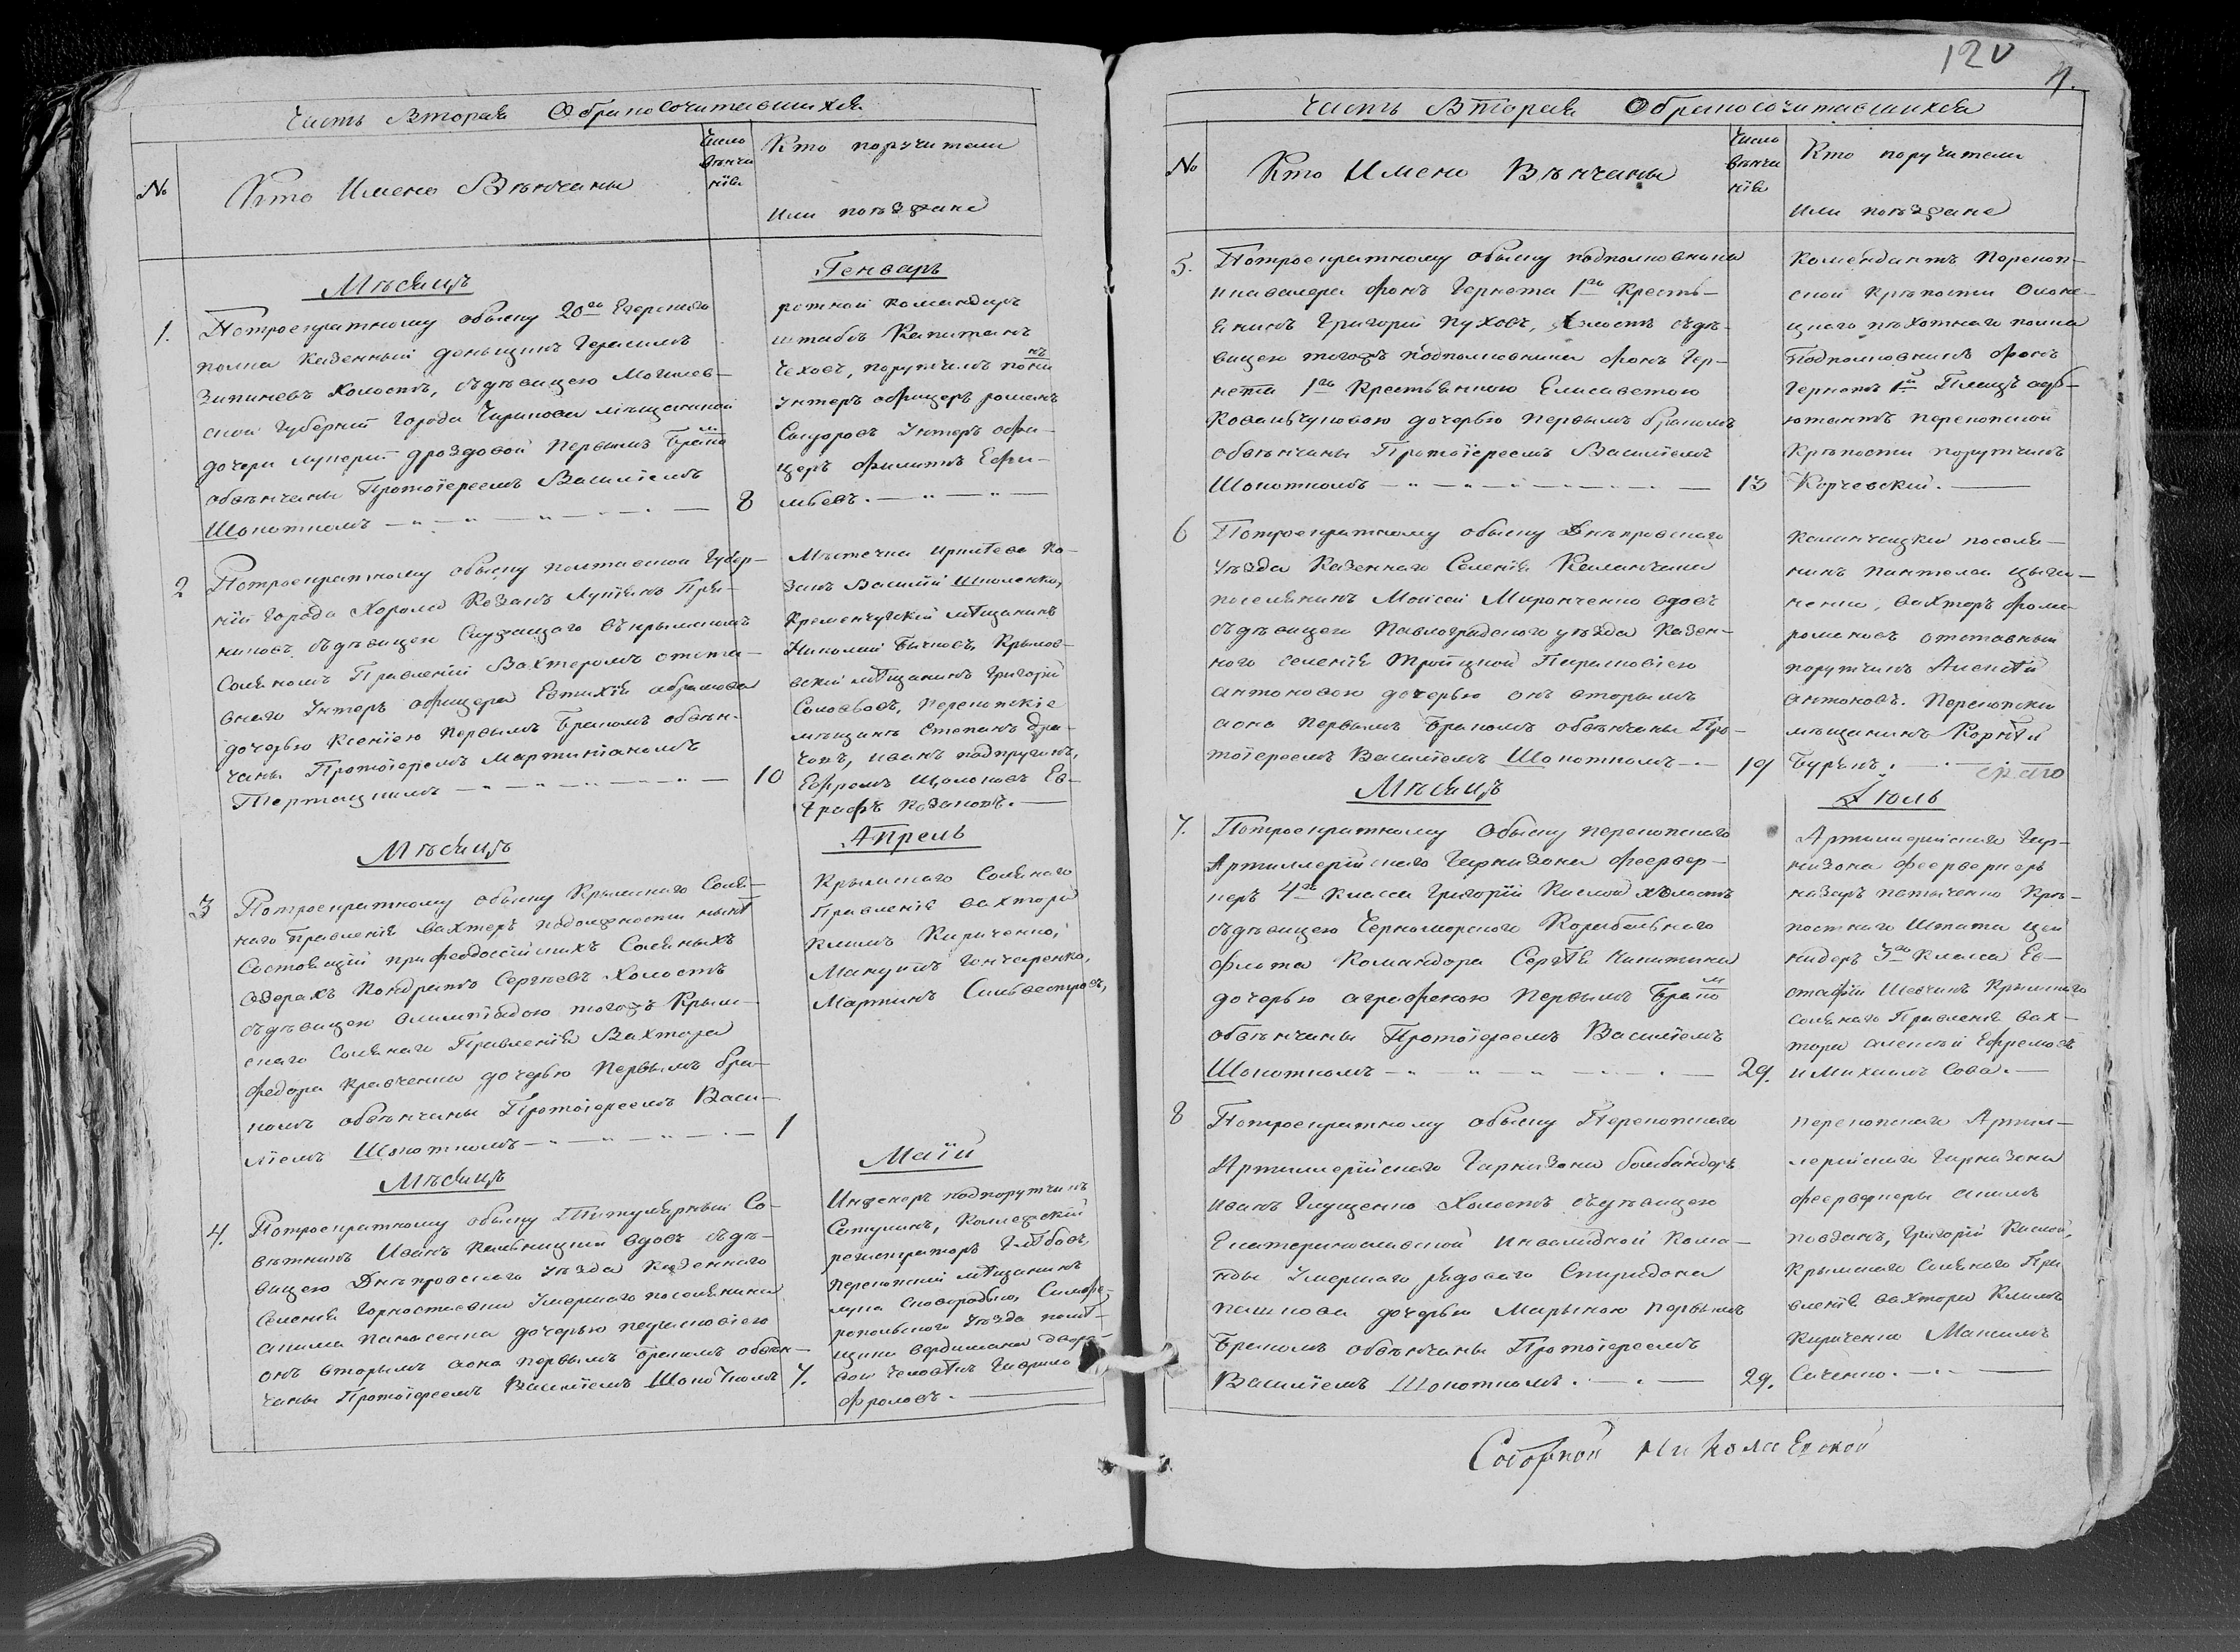 Часть Вторая О бракосочитавшихся
№
Кто Имено Вѣнчаны
Число
Вѣнча
нія
Кто поручители
или поѣзжане
Мѣсяцъ
Генварь
1.
Потроекратному обыску 20го Егерскаго
полка Казенный деньщикъ Герасимъ
Зипиневъ Холостъ, съдѣвицею Могилев-
ской Губерніи Города Чирикова мѣщанкой
дочери Дроздовой Первымъ Брако
м
обвѣнчаны Протоіереемъ Василіемъ
Шокоткомъ
8
ротной командиръ
штабъ Капитанъ
Чеховъ, порутчикъ
унтеръ офицеръ романъ
Сидоровъ Унтеръ офи-
церъ Филипъ Ефи-
мьевъ.
2
Потроекратному обыску полтавской Губер-
ніи Города Хорола Козакъ Лукъянъ При-
никовъ съдѣвицею Служащаго въкрымскомъ
Соляномъ Правленіи Вахтеромъ отста-
внаго Унтеръ офицера Евтихія абрамова
дочерью Ксеніею Первымъ Бракомъ обвѣн-
чаны Протоіереемъ Мартиніаномъ
Тертацкимъ
10
Мѣстечка Ирклѣева Ко-
закъ Василій Школенко,
Кременчугскій мѣщанинъ
Николай Бычковъ, Крылов-
скій мѣщанинъ Григорій
Соловьовъ, Перекопскіе
мѣщане Степанъ
иванъ подпружинъ,
Ефремъ Щолоковъ Ев-
графъ Козаковъ.
Мѣсяцъ
Апрель
3
Потроекратному обыску Крымскаго Соля-
наго Правленія Вахтеръ подолжности
Состоящій прифеодосійскихъ Соляныхъ
Озерахъ Кондратъ Сергѣевъ Холостъ
съдѣвицею Олимпіадою тогожъ Крым-
скаго Солянаго Правленія Вахтера
Федора Кравченка дочерью Первымъ бра-
комъ обвѣнчаны Протоіереемъ Васи-
ліемъ Шокоткомъ
1
Крымскаго Солянаго
Правленія вахтера
Климъ Кириченко,
Гончаренко,
Мартинъ Сильвестровъ,
Мѣсяцъ
Маій
4.
Потроекратному обыску Титулярный Со-
вѣтникъ Иванъ Кальницкій вдовъ съдѣ-
вицею Днѣпровскаго Уѣзда Казеннаго
Селенія Горностаевки Умершаго поселянина
акима Панасенка дочерью
онъ вторымъ аона первымъ Бракомъ обвѣн-
чаны Протоіереемъ Василіемъ Шокоткомъ
7.
Инженеръ подпорутчикъ
Сатунинъ, Колежскій
регистраторъ Глѣбовъ,
перекопскій мѣщанинъ
лука Сковородька, Симфе-
ропольскаго Уѣзда помѣ-
щика дворо-
вои человѣкъ Гаврило
Фроловъ.
120
Часть Вторая О бракосочитавшихся
№
Кто Имено Вѣнчаны
Число
Вѣнча
нія
Кто поручители
или поѣзжане
5.
Потроекратному обыску подполковника
икавалера фонъ Гернета 1го Кресть-
янинъ Григорій Пуховъ, Холостъ съдѣ-
вицею тогожъ подполковника фонъ Гер-
нета 1го Крестьянкою Елисаветою
Ковальчуковою дочерью первымъ бракомъ
обвѣнчаны Протоіереемъ Василіемъ
Шокоткомъ
13
Комендантъ Перекоп-
ской Крѣпости Олоне-
цкаго пѣхотнаго полка
Подполковникъ фонъ
Гернетъ 1й Плацъ адъ-
ютантъ перекопской
Крѣпости порутчикъ
Корчевскій.
6
Потроекратному обыску Днѣпровскаго
Уѣзда Казеннаго Селенія Каланчака
поселянинъ Моисей Миронченко вдовъ
съдѣвицею Павлоградскаго уѣзда Казен-
ного селенія Тройцкой Пирасковіею
антоновою дочерью онъ вторымъ
аона первымъ Бракомъ обвѣнчаны Про-
тоіереемъ Василіемъ Шокоткомъ
19
Каланчацкіи поселя-
нинъ пантелеи цыга-
ненко, вахтеръ фома
романовъ отставныи
порутчикъ Алексѣи
антоновъ. Перекопски
мѣщанинъ Корнѣи
Бурѣкъ.
Мѣсяцъ
Іюль
7.
Потроекратному Обыску перекопскаго
Артиллерійскаго Гарнизона феервер-
керъ 4го Класса Григорій Кислой холостъ
съдѣвицею Черноморскаго Корабельнаго
флота Командора Сергѣя Никитина
дочерью агрефеною Первымъ Брако
м
обвѣнчаны Протоіереемъ Василіемъ
Шокоткомъ
29.
Артиллерійскаго Гар-
низона феерверкеръ
назаръ Крѣ-
постнаго Штата цей
хидеръ 3го Класса Ев-
стафій Шевчикъ Крымскаго
Солянаго Правленія вах-
тера алексѣй Ефремовъ
и Михаилъ Сова.
8
Потроекратному обыску Перекопскаго
Артиллерійскаго Гарнизона бомбандеръ
иванъ Глущенко Холостъ съдѣвицею
Екатеринославской Инвалидной Кома-
нды Умершаго рядоваго Спиридона
пешкова дочерью Марькою первымъ
Бракомъ обвѣнчаны Протоіереемъ
Василіемъ Шокоткомъ.
29.
перекопскаго Артил-
лерійскаго Гарнизона
феерверкеры акимъ
Григорій Кислой,
Крымскаго Солянаго Пра
вленія вахтера Климъ
Кириченко Максимъ
Саченко.
Соборной Николаевской